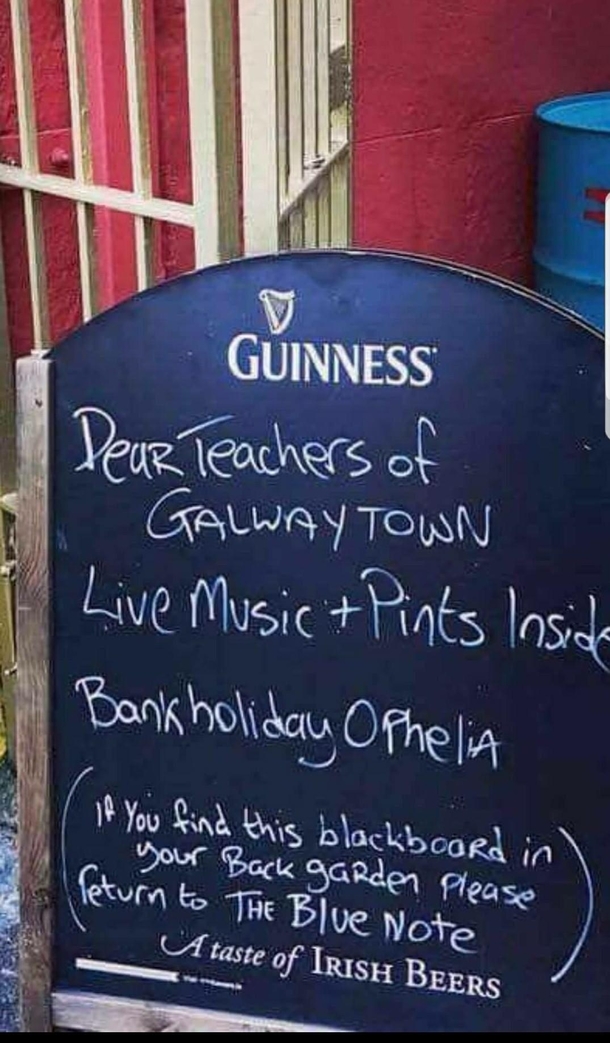 GUINNESS
Dear Teachers of
GALWAY TOWN
Live Music + Pints Inside
Bankholiday OPheliA
(If You find this blackboard in
your Back garden please
return to THE Blue Note)
A taste of IRISH BEERS